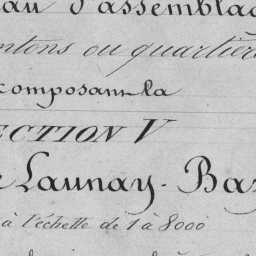 au d'assemblag
ntons ou quartiers
composant la
ECTION V
e Launay-Baz
à l'échelle de 1 à 8000